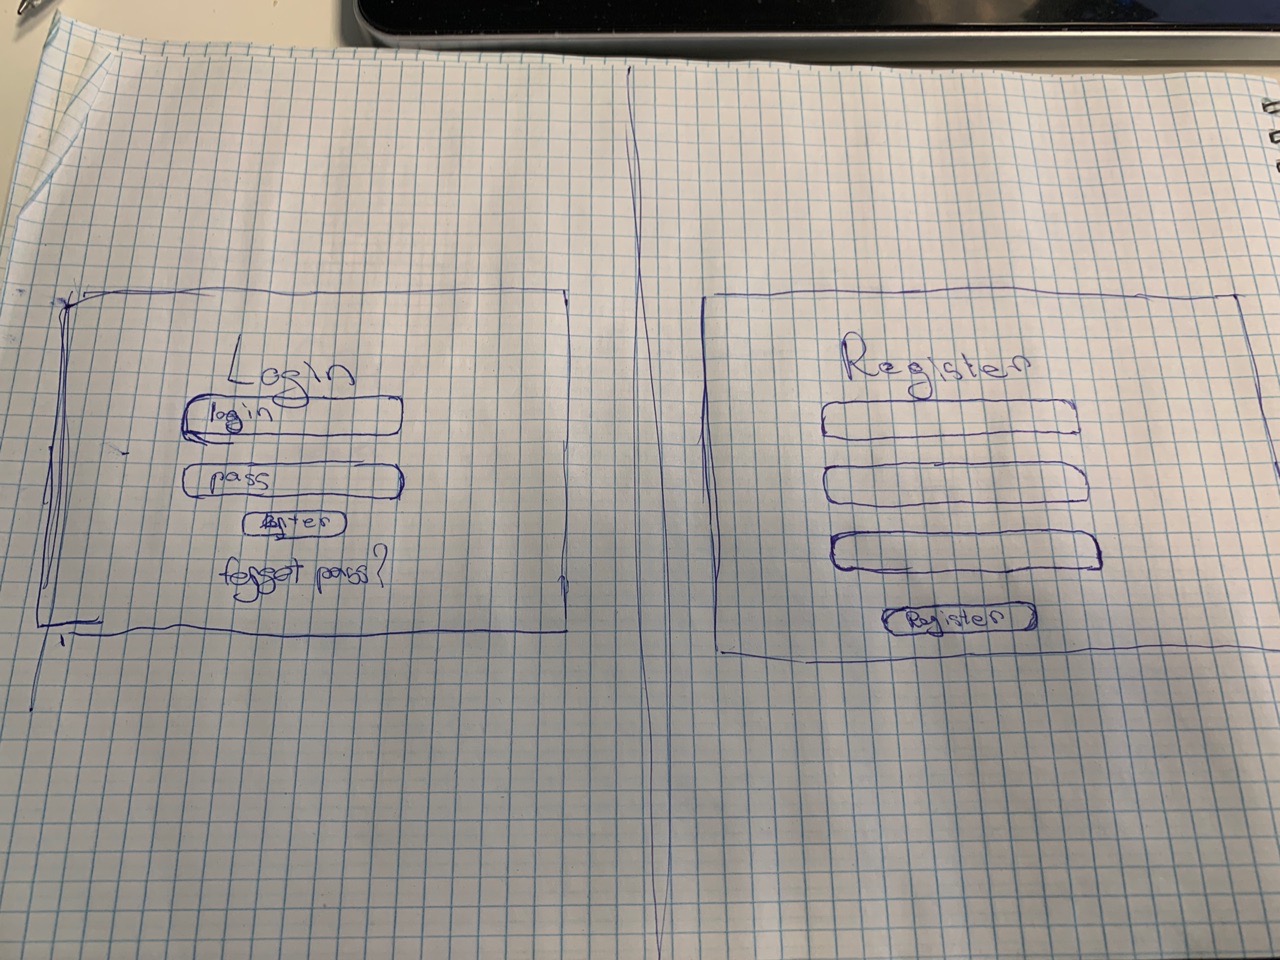 Login
login
pass
forget pass?
Register
Register